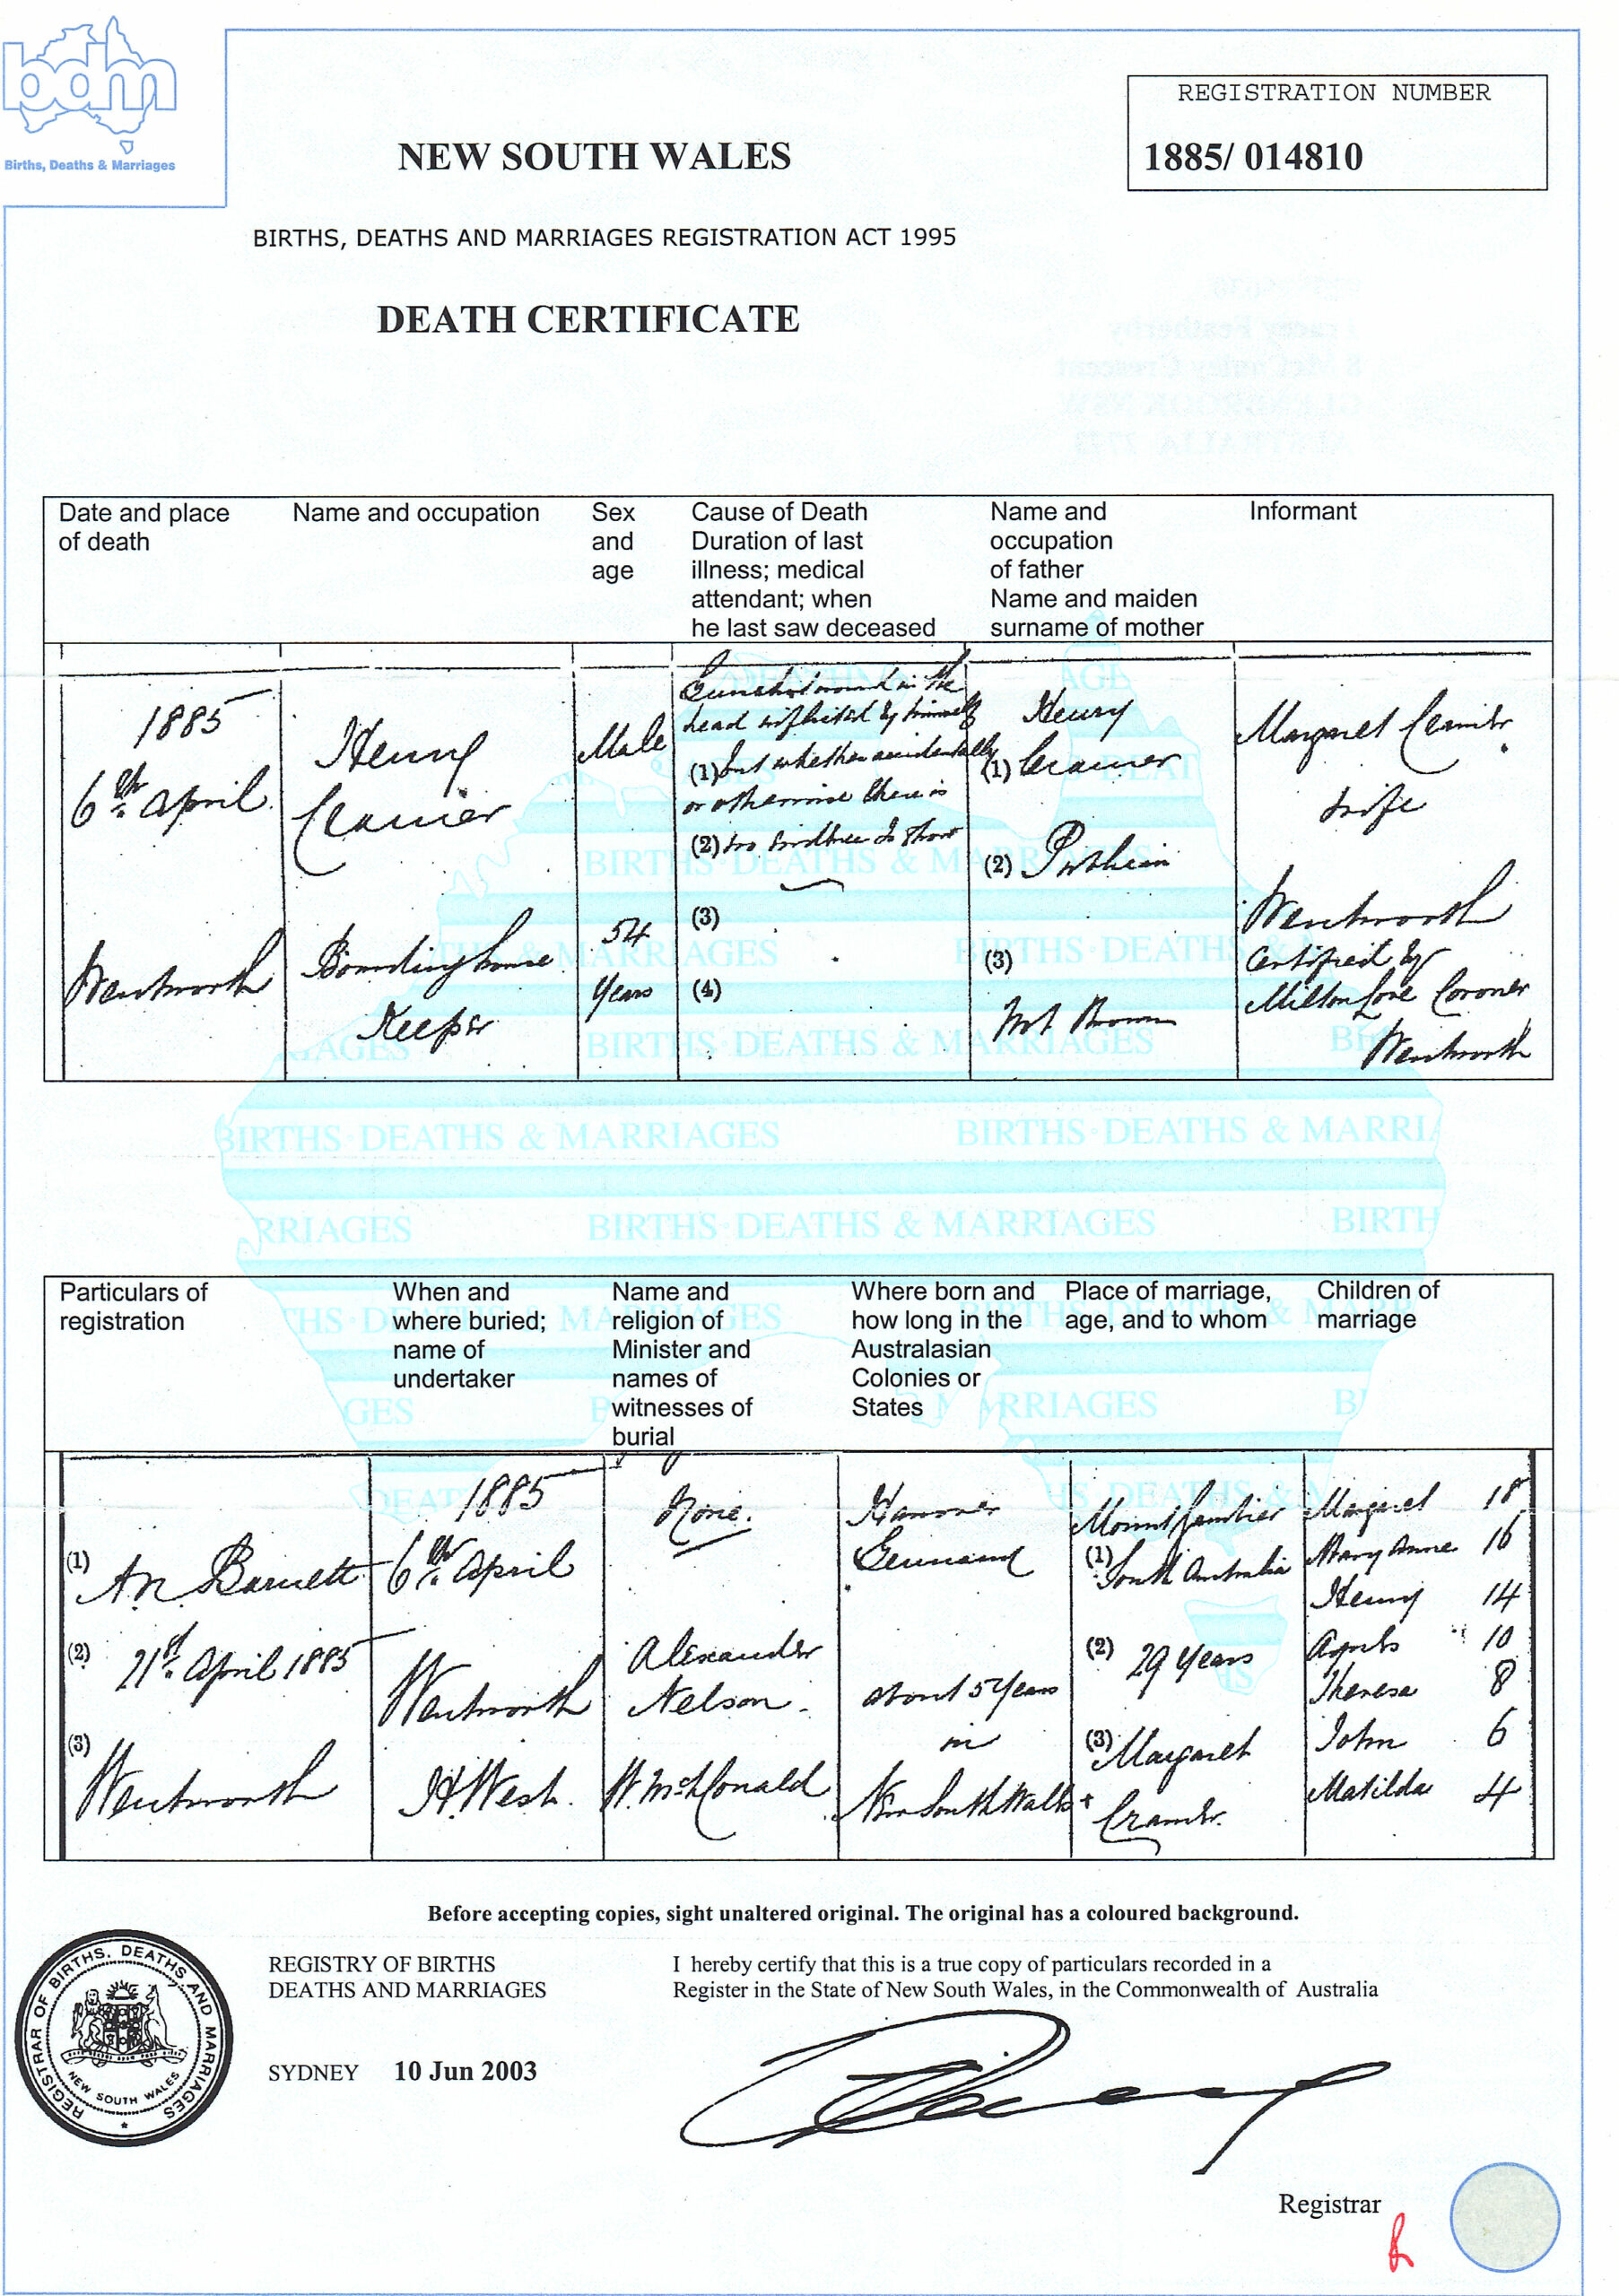 bdm
Births, Deaths & Marriages
REGISTRATION NUMBER
1885/ 014810
NEW SOUTH WALES
BIRTHS, DEATHS AND MARRIAGES REGISTRATION ACT 1995
DEATH CERTIFICATE
Date and place
of death
Name and occupation
Sex
and
age
Cause of Death
Duration of last
illness; medical
attendant; when
he last saw deceased
Name and
occupation
of father
Name and maiden
surname of mother
Informant
1885
6th April
Wentworth
Henry
Cramer
Boarding house
Keeper
Male
54
Years
Gunshot wound in the
head inflicted by himself
(1) but whether accidentally
or otherwise there is
(2) no evidence to show
(3)
(4)
Henry
(1) Cramer
(2)
(3)
Not Known
Margaret Cramer
wife
Wentworth
Certified by
Milton Love Coroner
Wentworth
Particulars of
registration
When and
where buried;
name of
undertaker
Name and
religion of
Minister and
names of
witnesses of
burial
Where born and
how long in the
Australasian
Colonies or
States
Place of marriage,
age, and to whom
Children of
marriage
(1)
A N Barnett
(2)
21st April 1885
(3)
Wentworth
1885
6th April
Wentworth
H. West.
None.
Alexander
Nelson.
W. McDonald
Hanover
Germany
about 5 Years
in
New South Wales +
Mount Gambier
(1)
South Australia
(2) 29 Years
(3) Margaret
Cramer.
Margaret 18
Mary Anne 16
Henry 14
Agnes 10
Theresa 8
John 6
Matilda 4
Before accepting copies, sight unaltered original. The original has a coloured background.
REGISTRAR OF BIRTHS, DEATHS AND MARRIAGES
NEW SOUTH WALES
REGISTRY OF BIRTHS
DEATHS AND MARRIAGES
SYDNEY 10 Jun 2003
I hereby certify that this is a true copy of particulars recorded in a
Register in the State of New South Wales, in the Commonwealth of Australia
Registrar